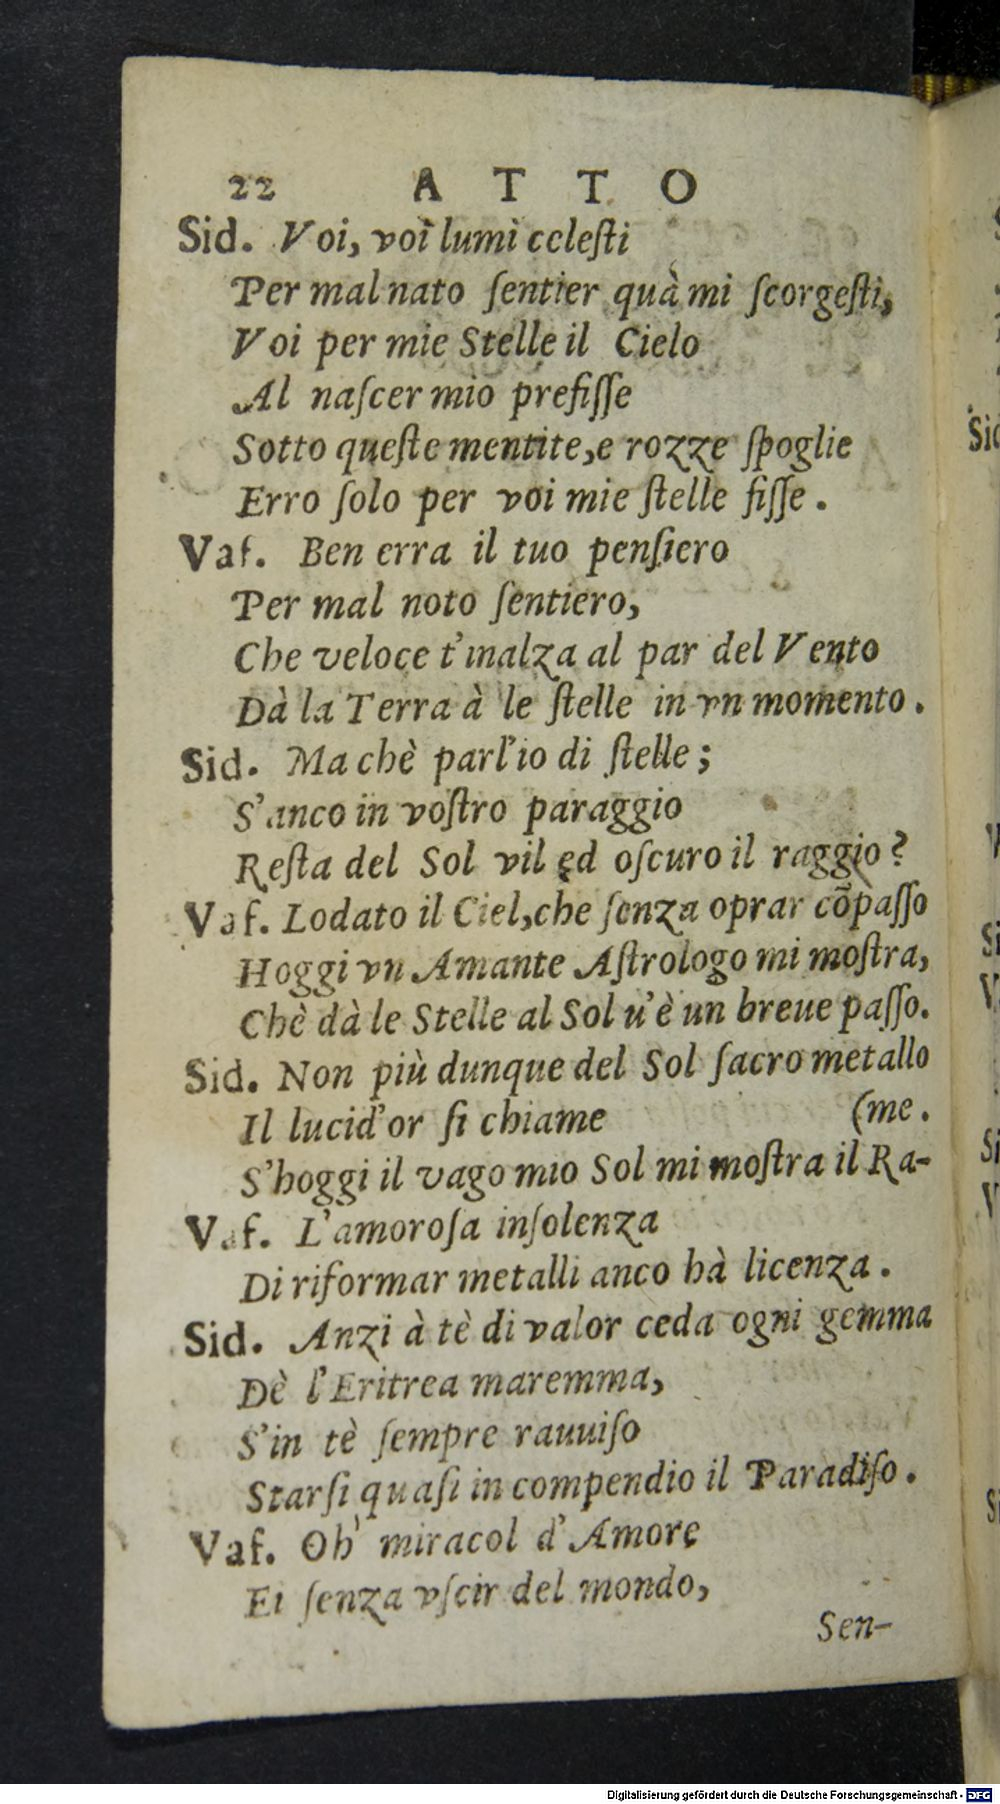 22 ATTO
Sid. Voi, voi lumi cclesti
Per mal nato ſentier quà mi ſcorgeſti,
Voi per mie Stelle il Cielo
Al naſcer mio prefiſſe
Sotto queſte mentite, e rozze ſpoglie
Erro ſolo per voi mie ſtelle fiſſe.
Vaf. Ben erra il tuo penſiero
Per mal noto ſentiero,
Che veloce t'inalza al par del Vento
Dà la Terra à le ſtelle in vn momento.
Sid. Ma chè parl'io di ſtelle;
S'anco in voſtro paraggio
Reſta del Sol vil ed oſcuro il raggio?
Vaf. Lodato il Ciel, che ſenza oprar cõpaſſo
Hoggi vn Amante Aſtrologo mi moſtra,
Chè dà le Stelle al Sol u'è un breue paſſo.
Sid. Non più dunque del Sol ſacro metallo
Il lucid'or ſi chiame (me.
S'hoggi il vago mio Sol mi moſtra il Ra-
Vaf. L'amoroſa inſolenza
Di riformar metalli anco hà licenza.
Sid. Anzi à tè di valor ceda ogni gemma
Dè l'Eritrea maremma,
S'in tè ſempre rauuiſo
Starſi quaſi in compendio il Paradiſo.
Vaf. Oh' miracol d'Amore
Ei ſenza vſcir del mondo,
Sen-
Digitalisierung gefördert durch die Deutsche Forschungsgemeinschaft - DFG